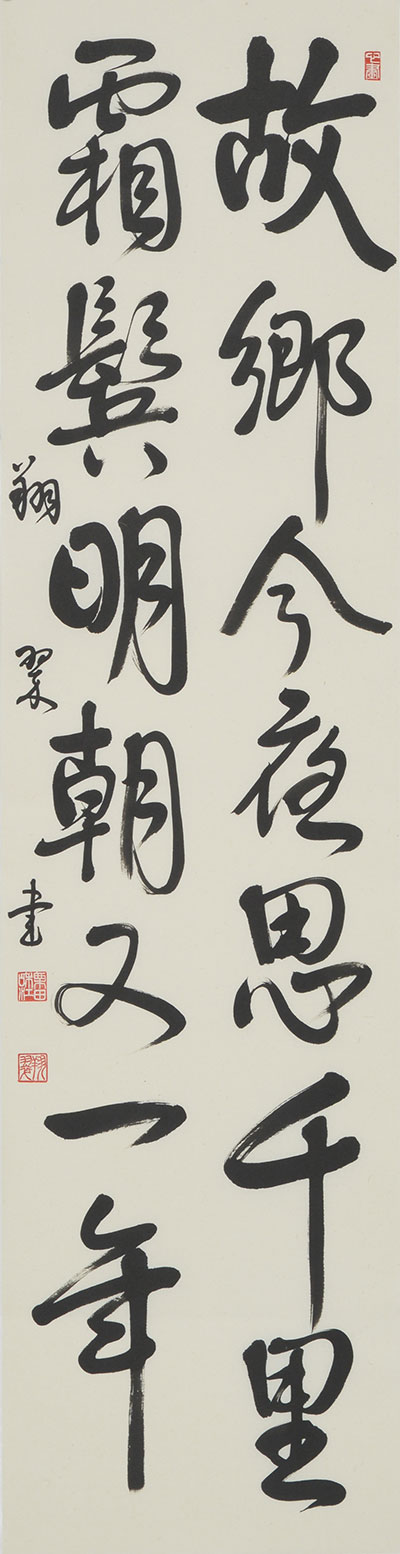 故鄉今夜思千里
霜鬢明朝又一年
翔翠書